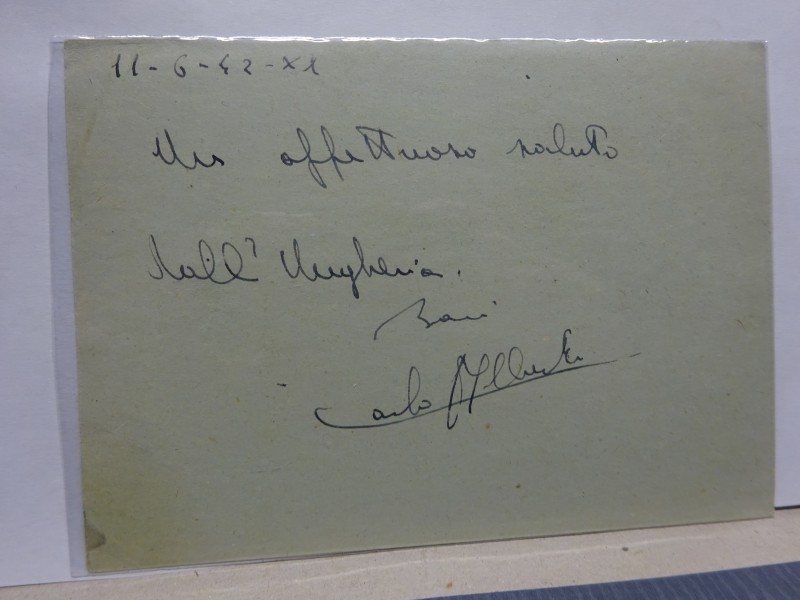 11-6-42-XX
Un affettuoso saluto
dall' Ungheria.
Baci
Carlo Alberto